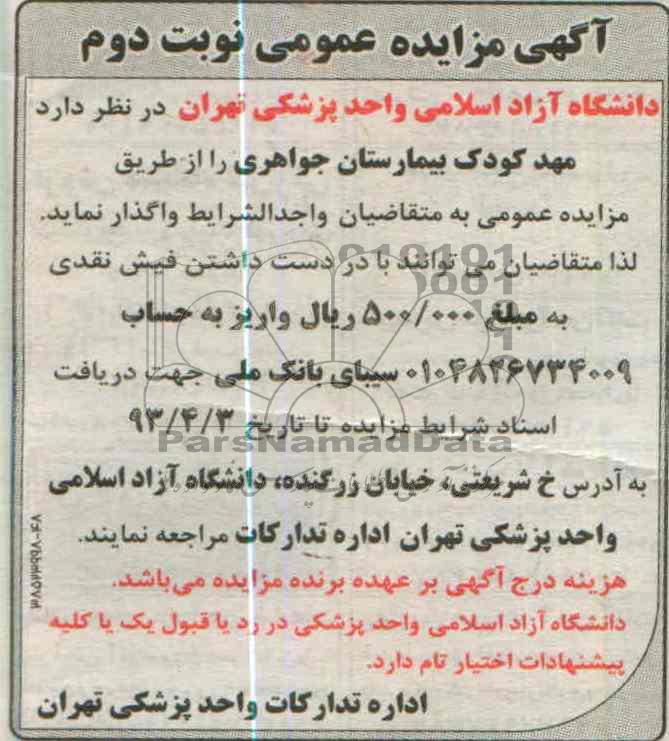 آگهی مزایده عمومی نوبت دوم
دانشگاه آزاد اسلامی واحد پزشکی تهران در نظر دارد
مهد کودک بیمارستان جواهری را از طریق
مزایده عمومی به متقاضیان واجدالشرایط واگذار نماید.
لذا متقاضیان می توانند با در دست داشتن فیش نقدی
به مبلغ ۵۰۰/۰۰۰ ریال واریز به حساب
۰۱۰۴۸۴۶۷۳۴۰۰۹ سیبای بانک ملی جهت دریافت
اسناد شرایط مزایده تا تاریخ ۹۳/۴/۳
ParsNamadData
به آدرس خ شریعتی، خیابان زرگنده، دانشگاه آزاد اسلامی
واحد پزشکی تهران اداره تدارکات مراجعه نمایند.
هزینه درج آگهی بر عهده برنده مزایده می‌باشد.
دانشگاه آزاد اسلامی واحد پزشکی در رد یا قبول یک یا کلیه
پیشنهادات اختیار تام دارد.
اداره تدارکات واحد پزشکی تهران